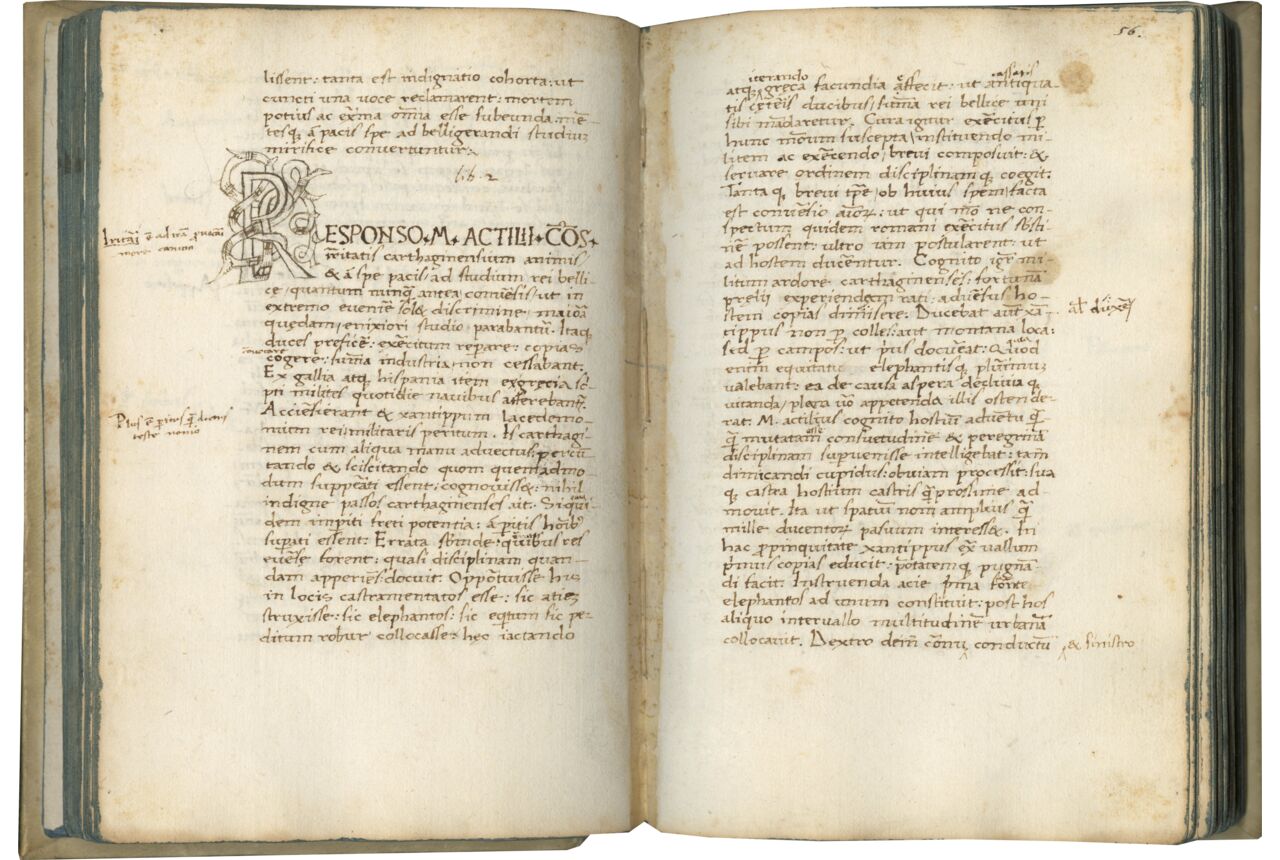 lissent: tanta est indignatio cohorta: ut
cuncti una voce reclamarent: mortem
potius ac exr̄ma om̄ia esse subeunda: mē-
tesq; a pacis spe ad belligerandi studiuz
mirifice convertuntur.
lib. 2
RESPONSO. M. ACTILII. CŌS.
irritatis carthaginensium animis/
& a spe pacis/ad studium rei belli-
ce/quantum nunq̄ antea conversis/ut in
extremo evenire solet discrimine: maiorā
quedam/enixiori studio/parabantur. Itaq;
duces prefic̄e: exercitum reparare: copias
cogere: suma industria/non cessabant.
Ex gallia atq; hispania item ex grecia sō-
pti milites quotidie navibus afferebantr̄.
Acciti fierant & xantippum lacedemo-
nium rei militaris peritum. Is carthagi-
nem cum aliqua manu advectus: percu
tando & sciscitando quom quemadmo-
dum supp̄ati essent: cognovisset: nihil
indigne passos carthaginenses ait. Siqui-
dem imp̄iti freti potentia: a p̄itis hōib;
sup̄ati essent. Errata s̄binde: quibus res
everse forent: quasi disciplinam quan-
dam apperiēs: docuit. Opportuisse his
in locis castramentatos esse: sic atiez
struxisse: sic elephantos: sic eqtum sic pe-
ditum robur collocasse: hec iactando
Irritari ē ad irā provocari
more canum
Plus ē peritus q̄ doctus
teste nonio
56.
iterando
atq; greca facundia affecit: ut antiqua-
tis ceteris ducibus: suma rei bellice uni
sibi mandaretur. Cura igitur exercitus p
hunc modum suscepta/instituendo mi-
litem ac exercendo/brevi composuit: &
servare ordinem disciplinamq; coegit.
Tanta q; brevi tp̄e/ob huius spem/facta
est conversio aīorz: ut qui mō ne con-
spectum quidem romani exercitus susti-
nēe possent: ultro iam postularent: ut
ad hostem ducerentur. Cognito igr̄ mi-
litum ardore carthaginenses: fortunā
prelii experiendam rati: adversus ho-
stem copias dimisere. Ducebat aut xā-
tippus non p colles: aut montana loca:
sed p campos: ut prius docuerat: Quod
enim equitatu elephantisq; plurimuz
valebant: ea de causa aspera declivia q;
vitanda/plana vero appetenda illis ostende-
rat. M. actilius cognito hostium adventu q̄
q̄ mutatam consuetudinē & peregrinā
disciplinam supvenisse intelligebat: tam̄
dimicandi cupidus: obviam processit: sua
q; castra hostium castris q̄ proxime ad-
movit. Ita ut spatium non amplius q̄
mille ducentorz passuum interesset. In
hac p̄pinquitate xantippus ex vallum
primus copias educit: potatemq; pugnā
di facit. Instruenda acie prima fronte
elephantos ad unum constituit: post hos
aliquo intervallo multitudinē urbanā
collocavit. Dextro dein cornu conductū
al' duxēe
& sinistro